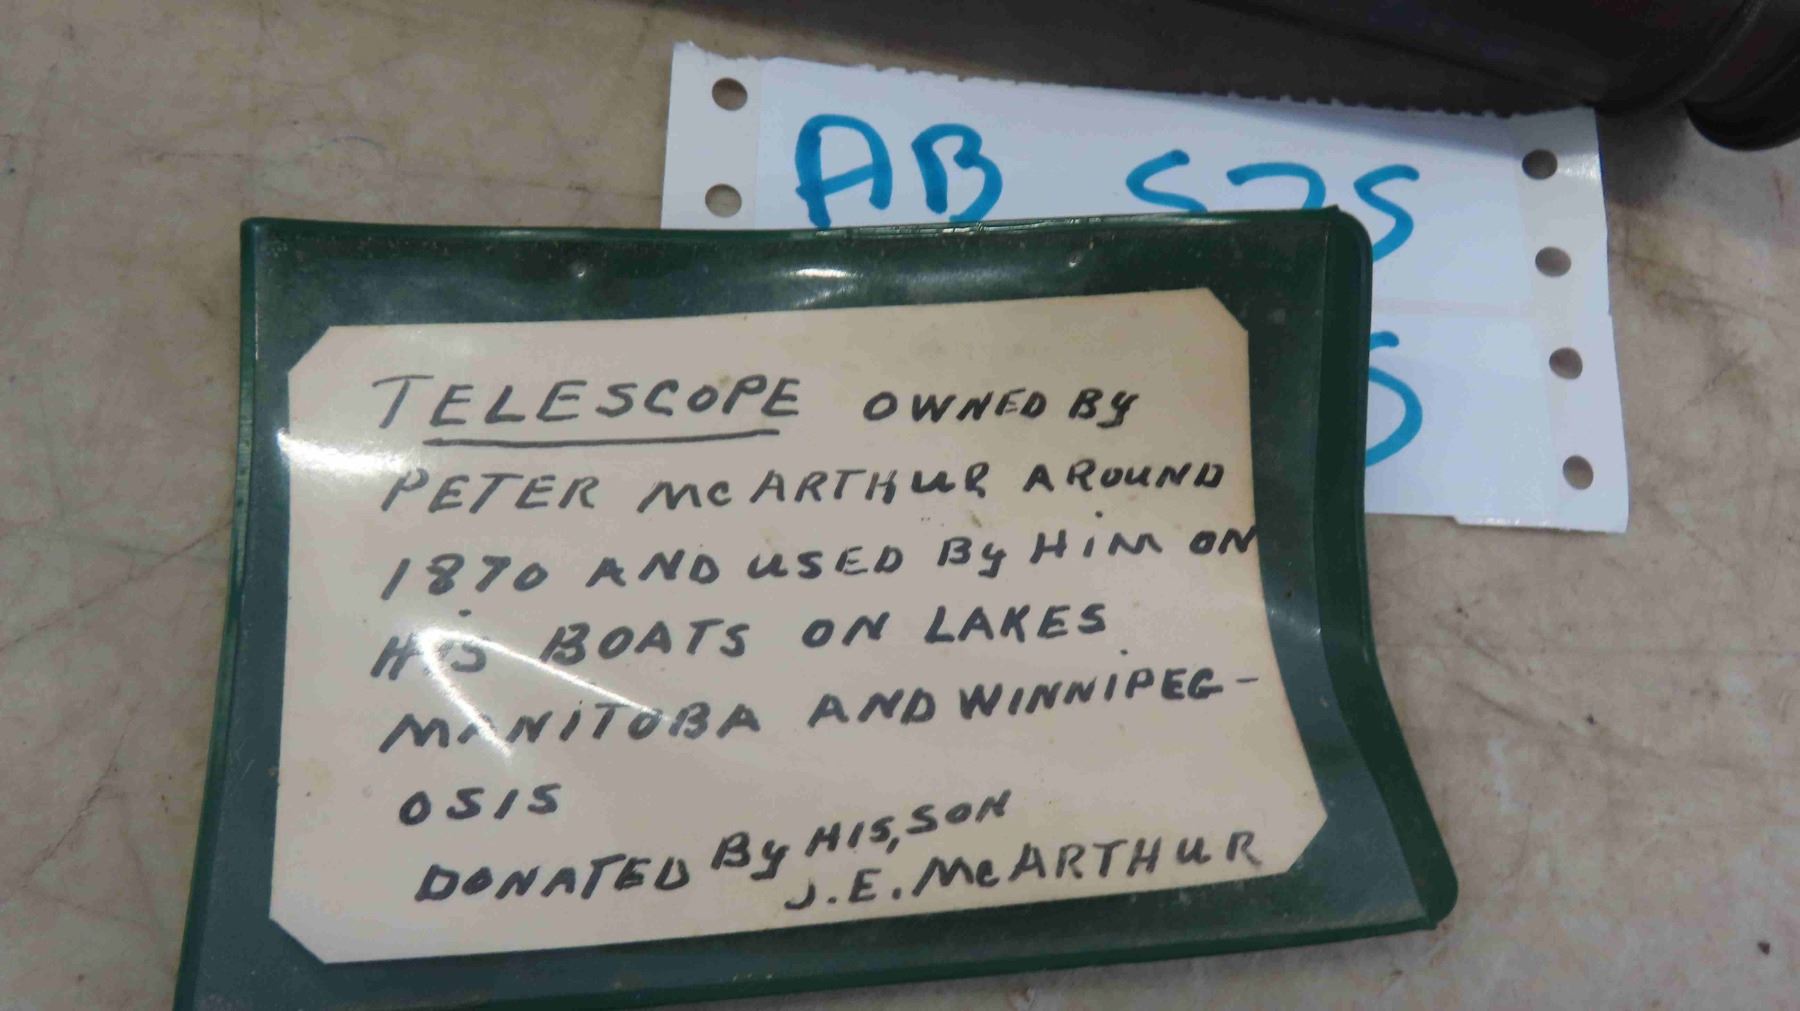 AB 575
TELESCOPE OWNED By
PETER McARTHUR AROUND
1870 AND USED By HiM ON
HiS BOATS ON LAKES
MANiTOBA AND WINNiPEG-
OSIS
DONATED By HIS, SON
J.E. McARTHUR